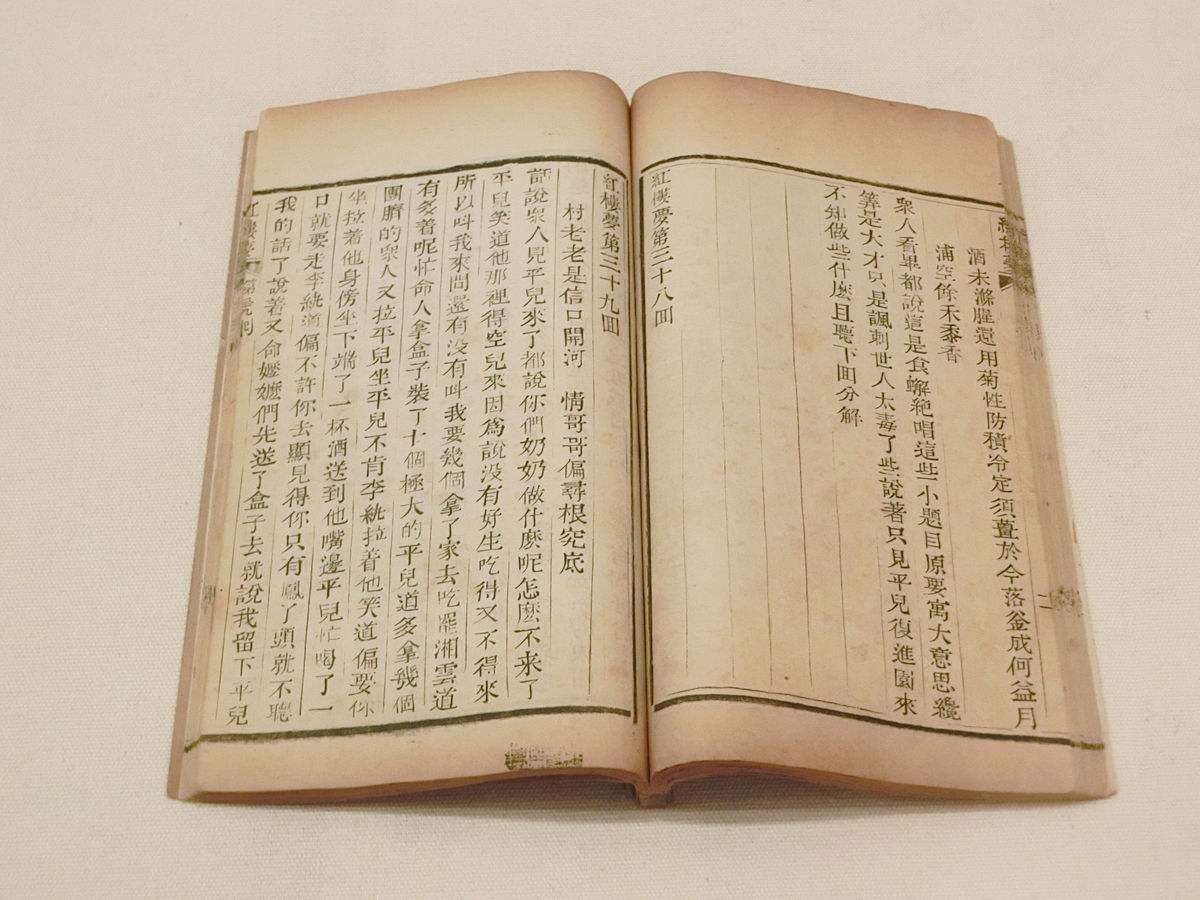 酒未滌腥還用菊性防積冷定須薑於今落釜成何益月
浦空餘禾黍香
衆人看畢都說這是食蠏絶唱這些小題目原要寓大意思纔
筭是大才只是諷刺世人太毒了些說著只見平兒復進園來
不知做些什麽且聽下囬分解
紅樓夢第三十八囬
紅樓夢第三十九囬
村老老是信口開河 情哥哥偏尋根究底
話說衆人見平兒來了都說你們奶奶做什麽呢怎麽不来了
平兒笑道他那裡得空兒來因爲說没有好生吃得又不得來
所以呌我來問還有没有呌我要幾個拿了家去吃罷湘雲道
有多着呢忙命人拿盒子裝了十個極大的平兒道多拿幾個
團臍的衆人又拉平兒坐平兒不肯李紈拉着他笑道偏要你
坐拉着他身傍坐下端了一杯酒送到他嘴邊平兒忙喝了一
口就要走李紈道偏不許你去顯見得你只有鳳丫頭就不聽
我的話了說着又命嬷嬷們先送了盒子去就說我留下平兒
紅樓夢